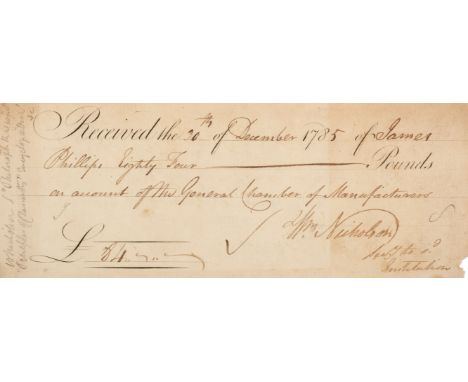 Received the 20th of December 1785 of James
Phillips Eighty Four Pounds
on account of the General Chamber of Manufacturers
Wm Nicholson
Secy to sd
Institution
£ 84.